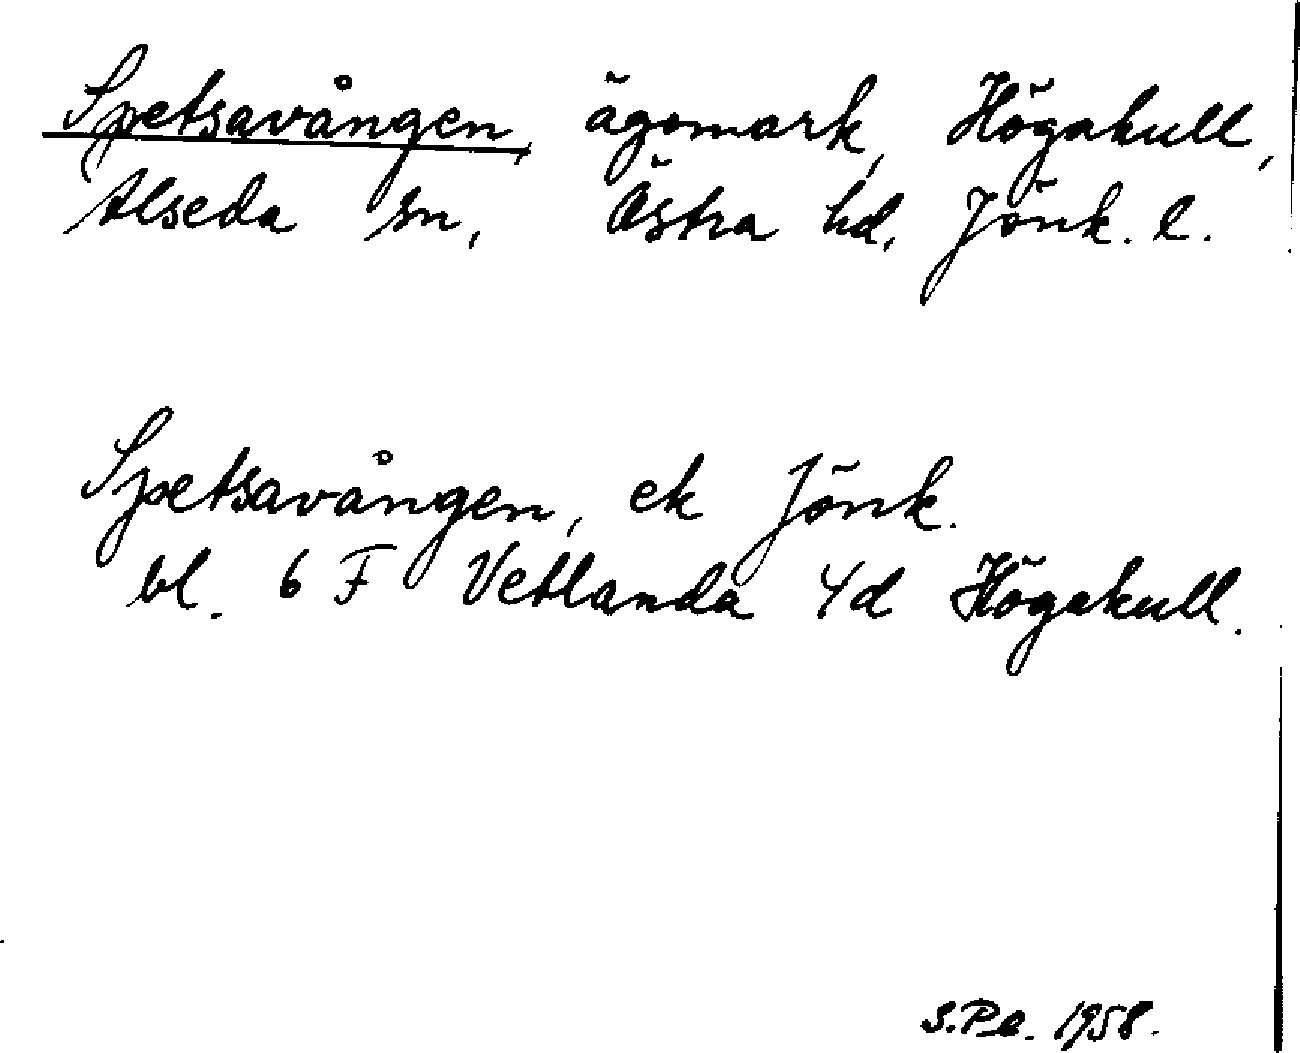 Spetsavången, ägomark, Högakull,
Alseda sn, Östra hd, Jönk. l.
Spetsavången, ek Jönk.
bl. 6 F Vetlanda 4d Högakull.
S.Pe. 1958.